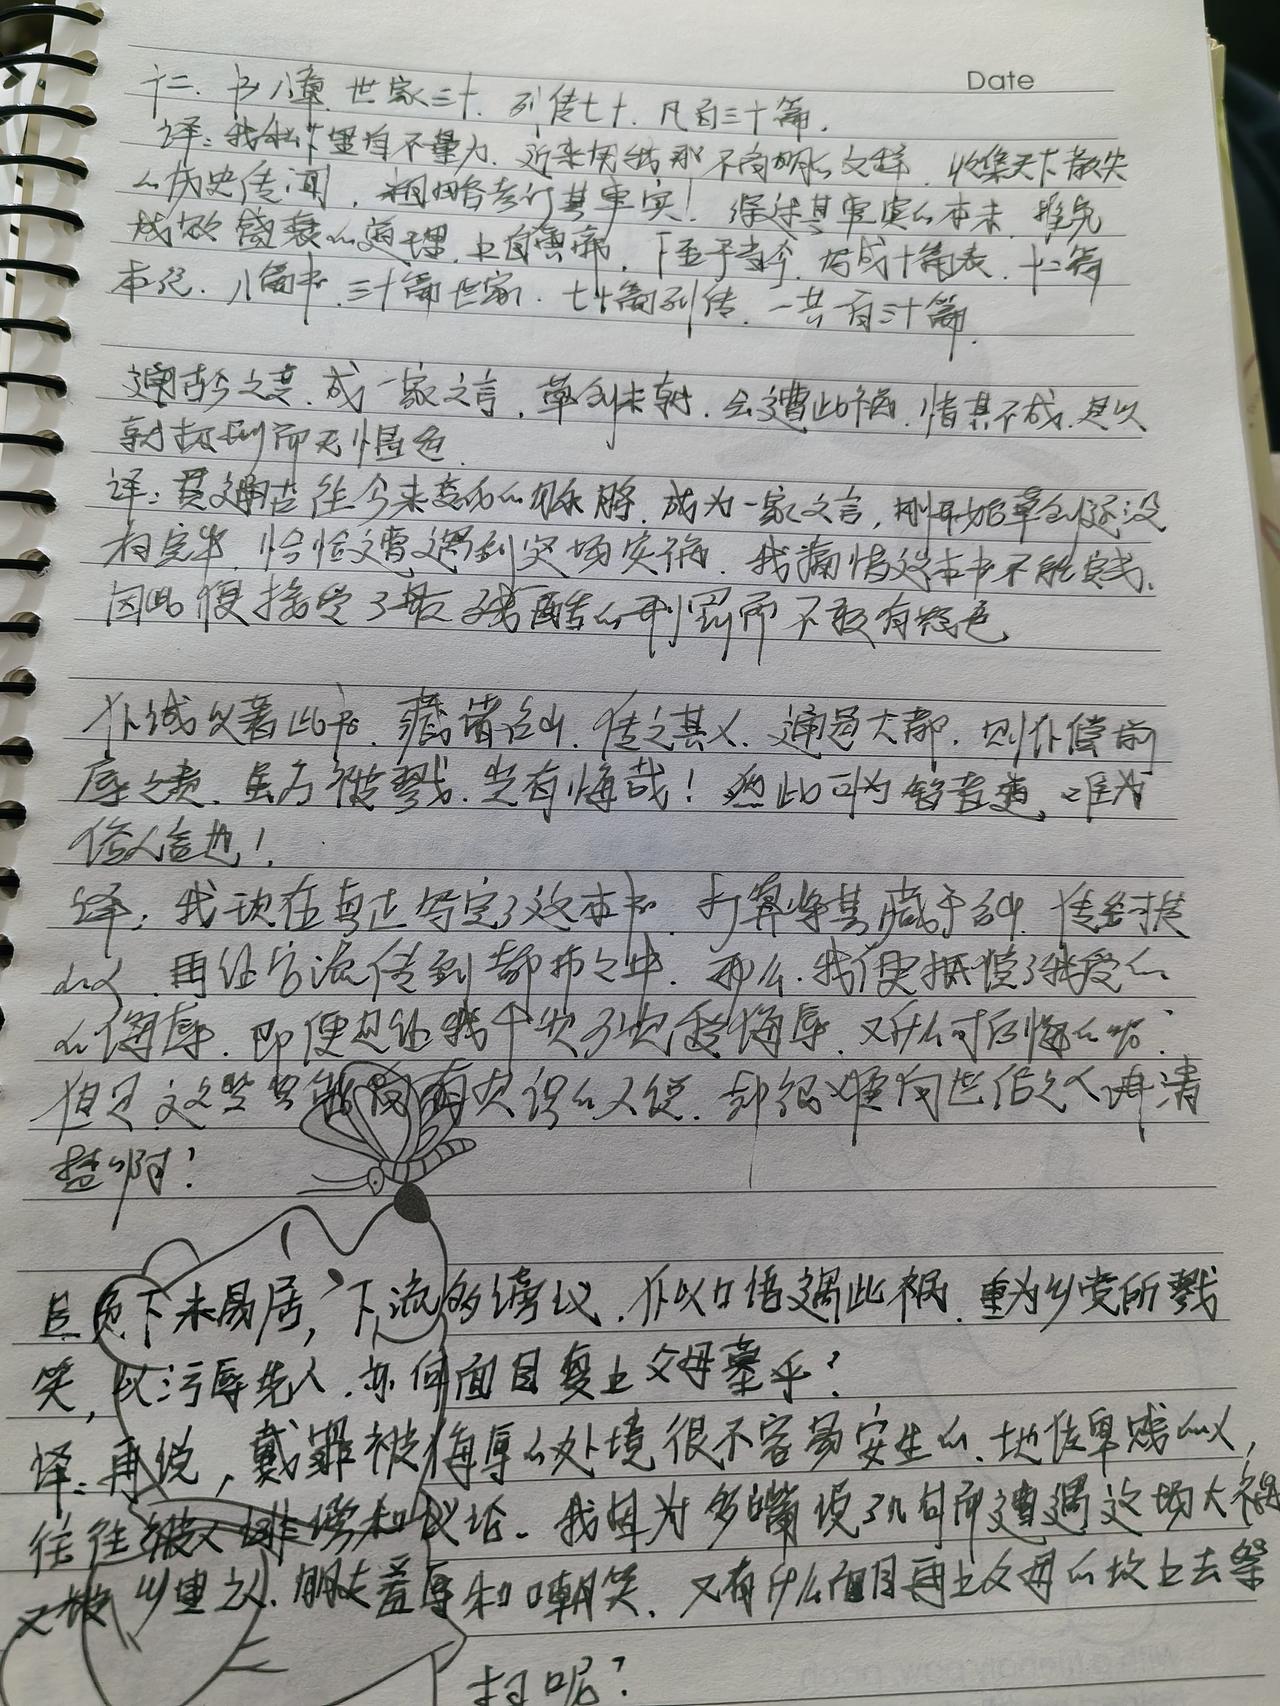 Date
十二、书八章、世家三十、列传七十、凡百三十篇。
译：我私下里自不量力、近来用我那不高明的文辞、收集天下散失
的历史传闻、粗略考订其事实！综述其事实的本末、推究
成败盛衰的道理、上自轩辕、下至于当今、写成十篇表、十二篇
本纪、八篇书、三十篇世家、七十篇列传、一共百三十篇。
通古今之变、成一家之言、草创未就、会遭此祸、惜其不成、是以
就极刑而无愠色。
译：贯通古往今来变化的脉络、成为一家之言、刚开始草创还没
有完毕、恰恰遭遇到这场灾祸、我痛惜这本书不能完成、
因此便接受了最残酷的刑罚而不敢有怒色
仆诚以著此书、藏诸名山、传之其人、通邑大都、则仆偿前
辱之责、虽万被戮、岂有悔哉！然此可为智者道、难为
俗人言也！
译：我现在真正写完了这本书、打算将其藏于名山、传给可传
的人、再让它流传到都市之中、那么、我便抵偿了我受的
的侮辱、即便是让我千次万次受侮辱、又什么可后悔的呢？
但是、这些只能向有见识的人说、却很难向世俗之人讲清
楚啊！
且负下未易居，下流多谤议、仆以口语遇此祸、重为乡党所戮
笑，以污辱先人、亦何面目复上父母墓乎？
译：再说，戴罪被侮辱的处境很不容易安生的、地位卑贱的人，
往往被人诽谤和议论。我因为多嘴说了几句而遭遇这场大祸
又被乡里之人、朋友羞辱和嘲笑、又有什么面目再上父母的坟上去祭
扫呢？